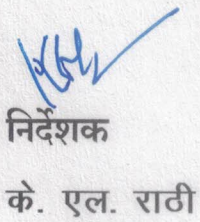 निर्देशक
के. एल. राठी